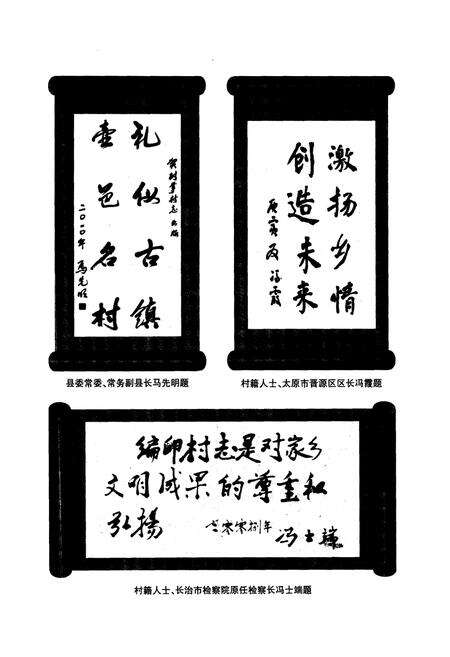 礼仪古镇
壶邑名村
二〇一〇年 马先明
县委常委、常务副县长马先明题
激扬乡情
创造未来
庚寅夏 冯霞
村籍人士、太原市晋源区区长冯霞题
编印村志是对家乡
文明成果的尊重和
弘扬
二零零捌年 冯士端
村籍人士、长治市检察院原任检察长冯士端题